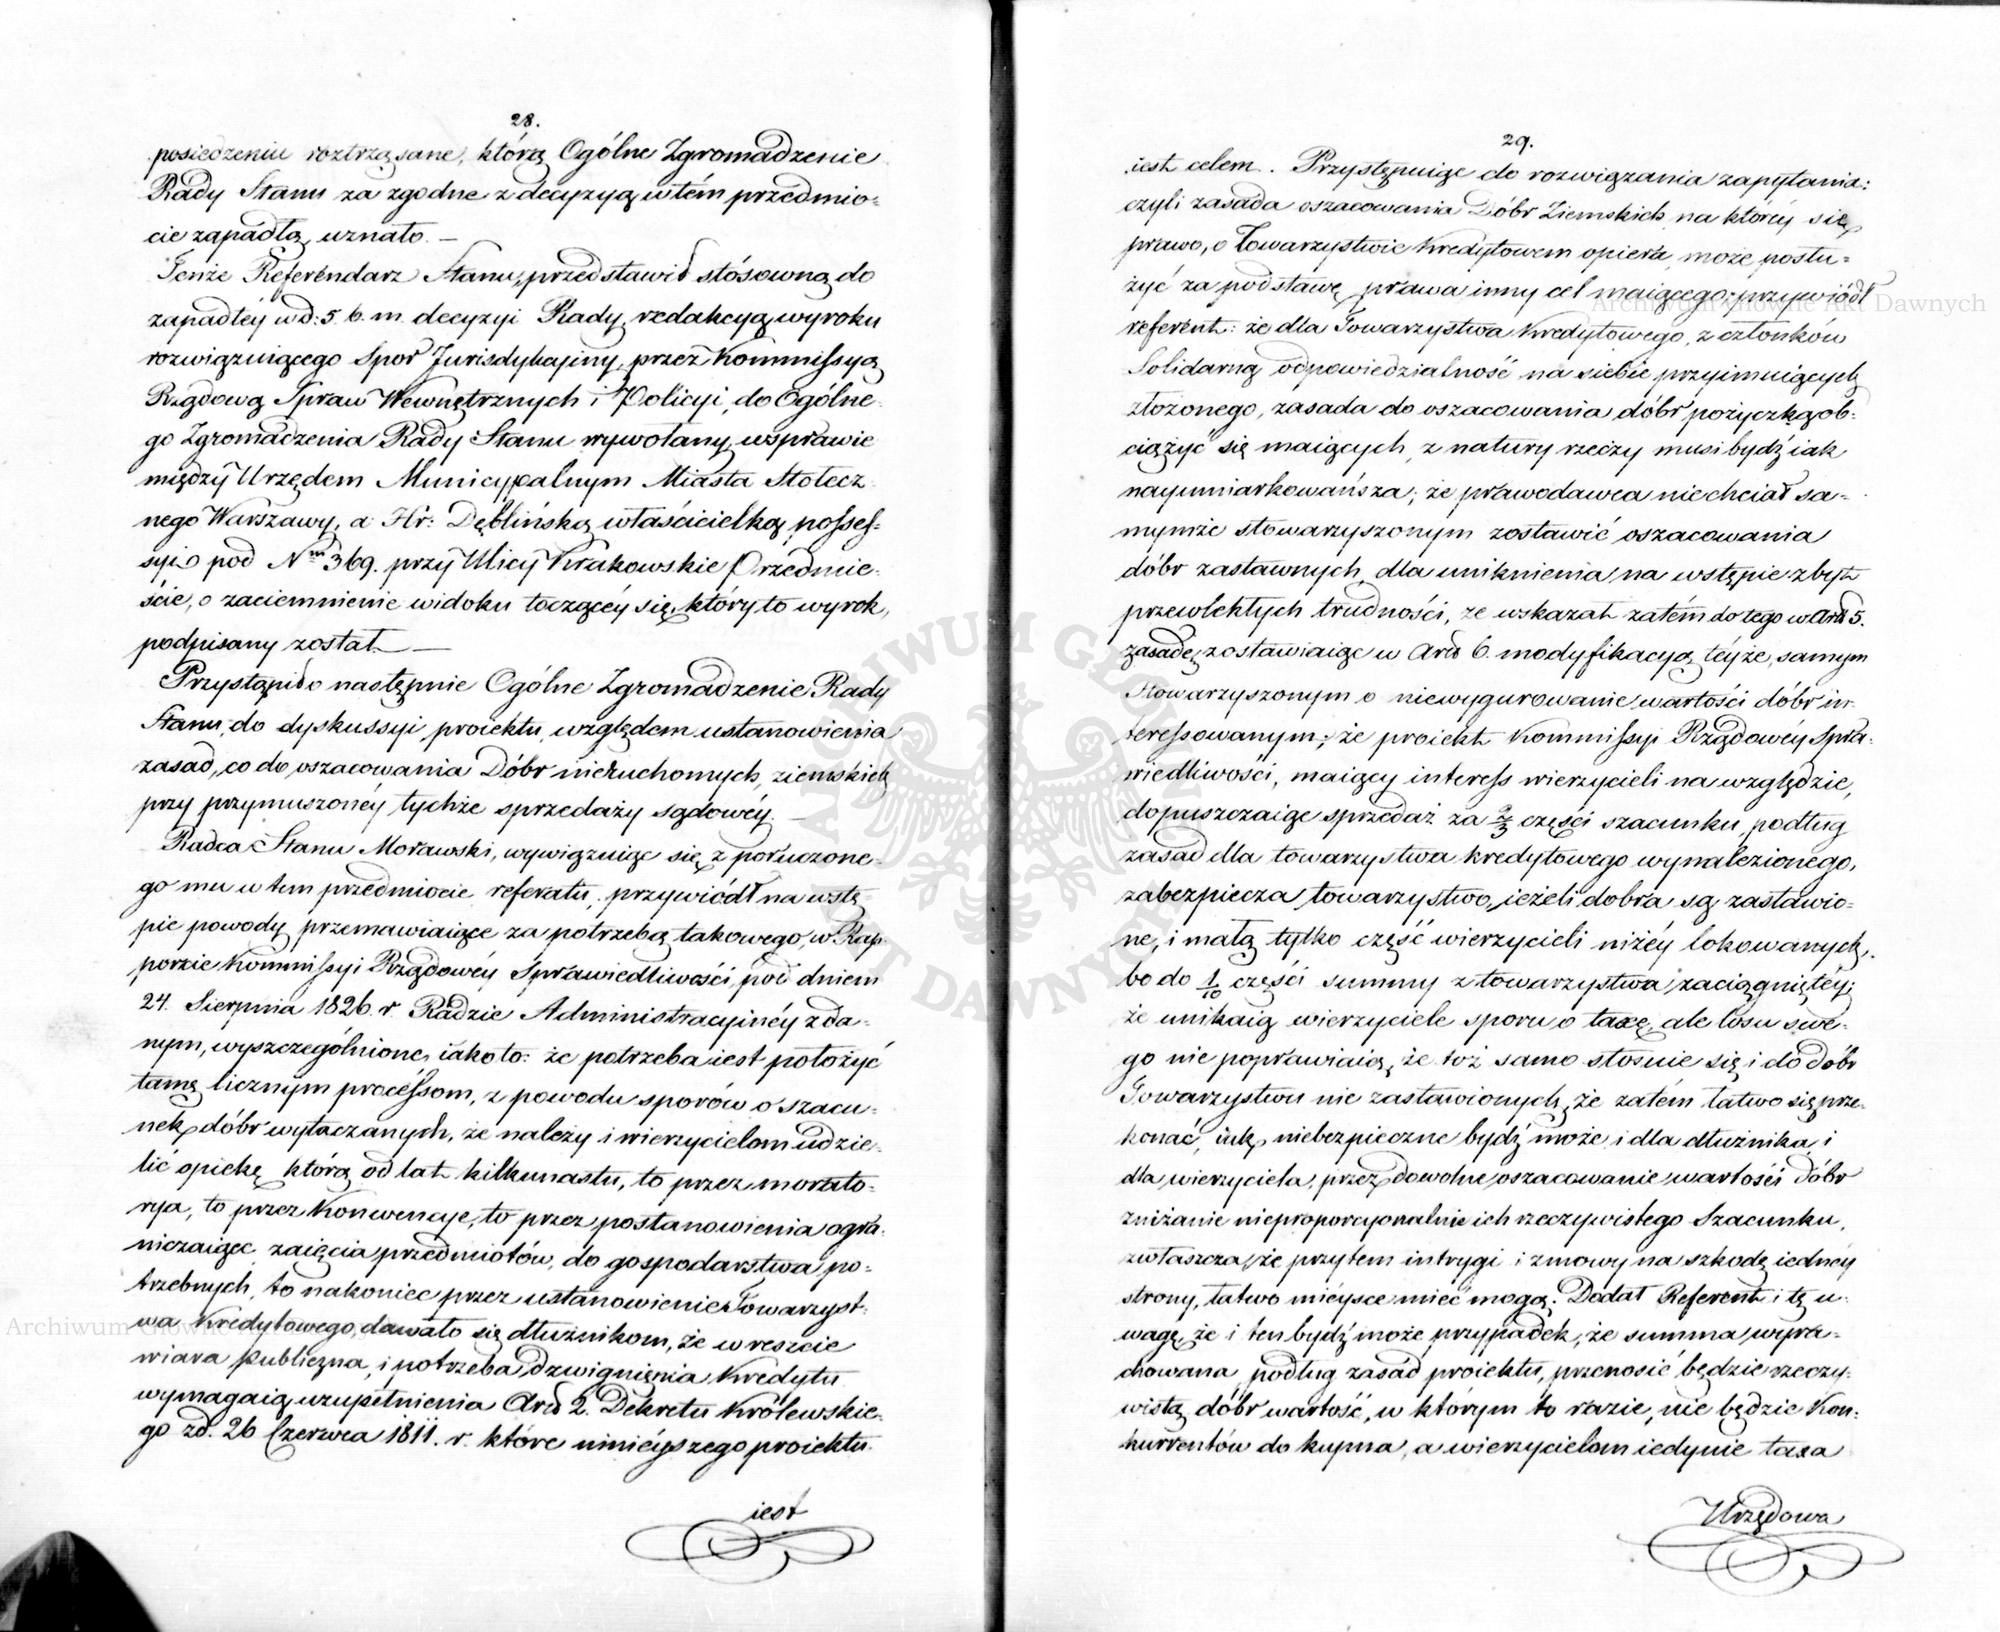 28.
posiedzeniu roztrząsane, którą Ogólne Zgromadzenie
Rady Stanu za zgodne z decyzyą w tém przedmio-
cie zapadłą, uznało. —
Tenże Referendarz Stanu, przedstawił stósowną do
zapadłéy w d: 5. b. m. decyzyi Rady, redakcyą wyroku
rozwiązuiącego Spor Jurisdykcyiny, przez Kommissyą
Rządową Spraw Wewnętrznych i Policyi, do Ogólne-
go Zgromadzenia Rady Stanu wywołany, w sprawie
między Urzędem Municypalnym Miasta Stołecz-
nego Warszawy, a Hr: Dęblińską właścicielką posses-
syi pod Nrm 369. przy Ulicy Krakowskie Przedmie-
ście, o zaciemnienie widoku toczącéy się, który to wyrok,
podpisany został. —
Przystąpiło następnie Ogólne Zgromadzenie Rady
Stanu, do dyskussyi proiektu, względem ustanowienia
zasad, co do oszacowania Dóbr nieruchomych, ziemskich
przy przymuszonéy tychże sprzedaży sądowéy. —
Radca Stanu Morawski, wywiązuiąc się z poruczone-
go mu w tem przedmiocie referatu, przywiódł na wstę-
pie powody przemawiaiące za potrzebą takowego, w Rap-
porcie Kommissyi Rządowéy Sprawiedliwości pod dniem
24. Sierpnia 1826. r. Radzie Administracyinéy zda-
nym, wyszczególnione, iako to: że potrzeba iest położyć
tamę licznym processom, z powodu sporów o szacu-
nek dóbr wytaczanych, że należy i wierzycielom udzie-
lić opiekę którą od lat kilkunastu, to przez morato-
rya, to przez Konwencye, to przez postanowienia ogra-
niczaiące zaięcia przedmiotów, do gospodarstwa po-
trzebnych, to nakoniec przez ustanowienie Towarzyst-
wa Kredytowego, dawało się dłużnikom, że w reszcie
wiara publiczna, i potrzeba dzwignięnia Kredytu
wymagaią uzupełnienia Artł 2. Dekretu Królewskie-
go zd. 26 Czerwca 1811. r. które ninieyszego proiektu
iest
29.
iest celem. Przystępuiąc do rozwiązania zapytania:
czyli zasada oszacowania Dóbr Ziemskich na któréy się
prawo, o Towarzystwie Kredytowem opiera, może posłu-
żyć za podstawę prawa inny cel maiącego; przywiódł
referent: że dla Towarzystwa Kredytowego, z członków
Solidarną odpowiedzialność na siebie przyimuiących
złożonego, zasada do oszacowania dóbr pożyczką ob-
ciążyć się maiących, z natury rzeczy musi bydź iak
nayumiarkowańsza; że prawodawca nie chciał sa-
mymże stowarzyszonym zostawić oszacowania
dóbr zastawnych, dla uniknienia na wstępie zbyt
przewlekłych trudności, że wskazał zatém do tego w Artł 5.
zasadę, zostawiaiąc w Artł 6. modyfikacyą téyże, samym
Stowarzyszonym o niewygurowanie wartości dóbr in-
teressowanym; że proiekt Kommissyi Rządowéy Spra-
wiedliwości, maiący interess wierzycieli na względzie,
dopuszczaiąc sprzedaż za 2/3 części szacunku, podług
zasad dla towarzystwa kredytowego wynalezionego,
zabezpiecza towarzystwo, ieżeli dobra są zastawio-
ne, i małą tylko część wierzycieli niżéy lokowanych,
bo do 1/10 części summy z towarzystwa zaciągniętéy;
że unikaią wierzyciele sporu o taxę, ale losu swe-
go nie poprawiaią, że toż samo stosuie się i do dóbr
Towarzystwu nie zastawionych, że zatém łatwo się prze-
konać, iak niebezpieczne bydź może i dla dłużnika, i
dla wierzyciela, przez dowolne oszacowanie wartości dóbr
zniżanie nieproporcyonalnie ich rzeczywistego Szacunku,
zwłaszcza, że przytem intrygi i zmowy na szkodę iednéy
strony, łatwo miéysce mieć mogą. Dodał Referent i tę u-
wagę, że i ten bydź może przypadek, że summa wyra-
chowana podług zasad proiektu, przenosić będzie rzeczy-
wistą dóbr wartość, w którym to razie, nie będzie Kon-
kurrentów do kupna, a wierzycielom iedynie taxa
Urzędowa
Archiwum Główne Akt Dawnych